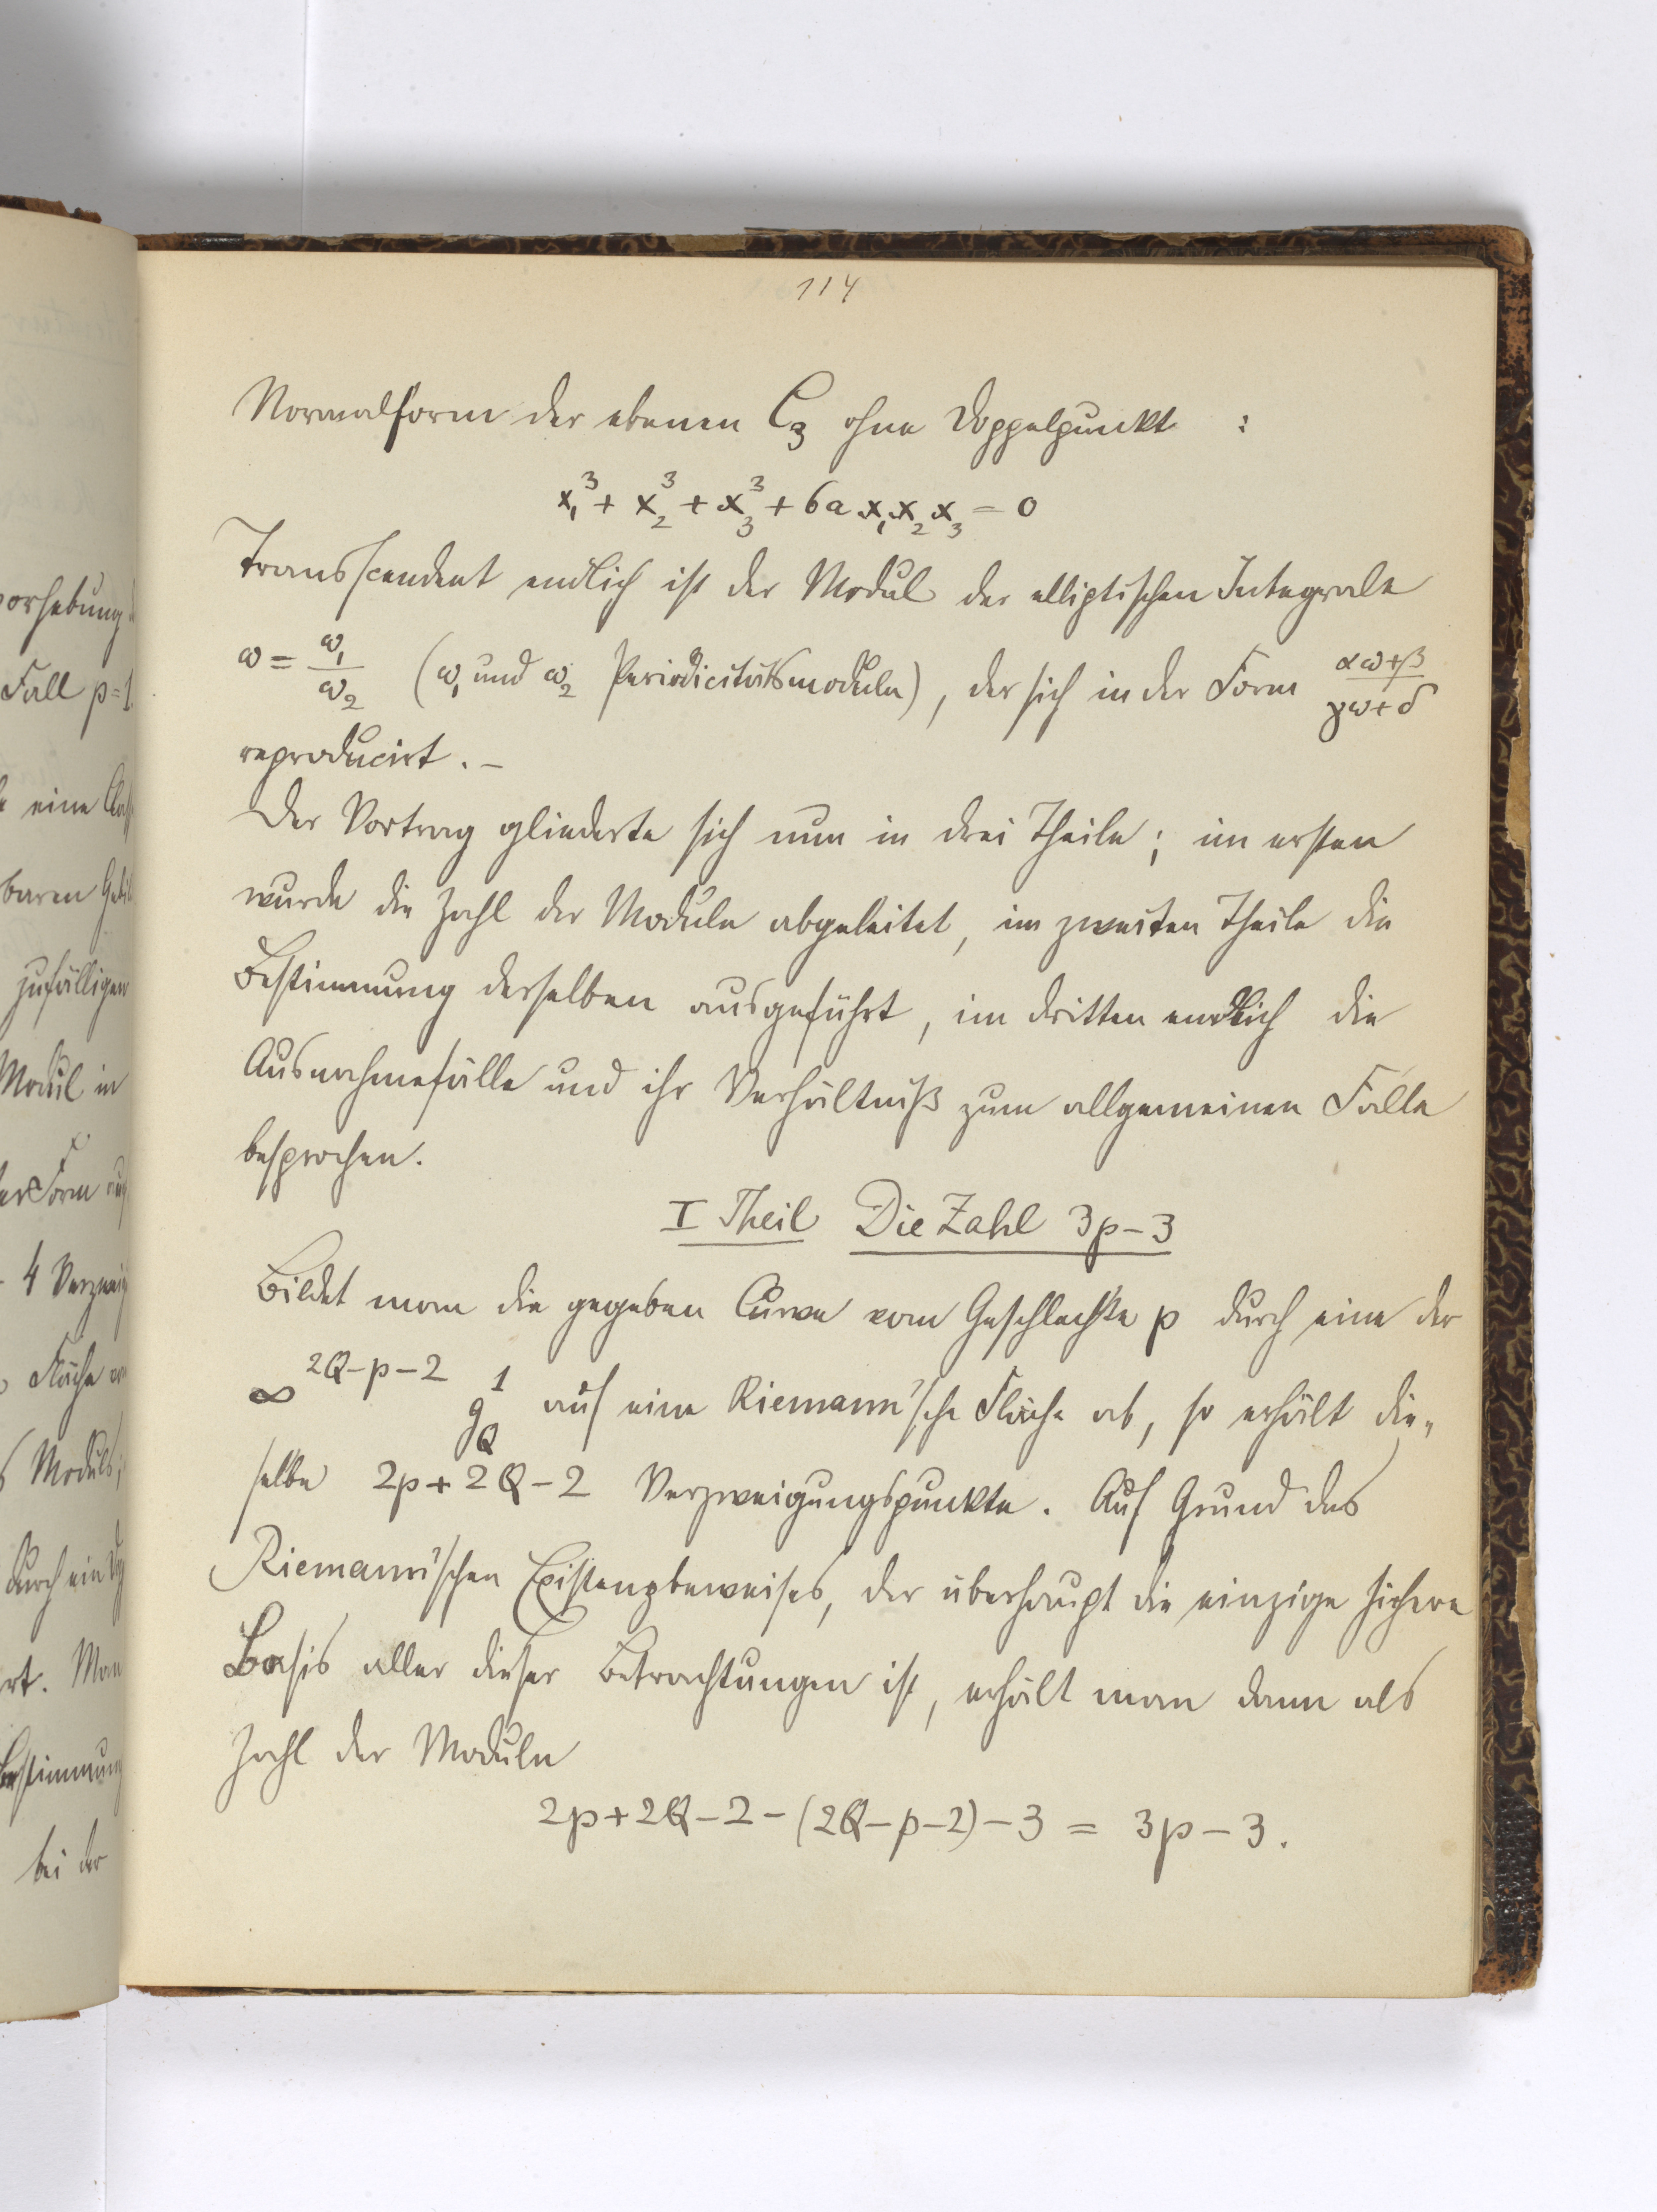 114
Normalform der ebenen C₃ ohne Doppelpunkt :
x₁³ + x₂³ + x₃³ + 6a x₁x₂x₃ = 0
Transscendent endlich ist der Modul der elliptischen Integrale
ω = ω₁/ω₂ (ω₁ und ω₂ Periodicitätsmoduln), der sich in der Form (αω+β)/(γω+δ)
reproducirt. –
Der Vortrag gliederte sich nun in drei Theile; im ersten
wurde die Zahl der Moduln abgeleitet, im zweiten Theile die
Bestimmung derselben ausgeführt, im dritten endlich die
Ausnahmefälle und ihr Verhältniß zum allgemeinen Falle
besprochen.
I Theil Die Zahl 3p-3
Bildet man die gegeben Curve vom Geschlechte p durch eine der
∞^(2Q-p-2) g_Q^1 auf eine Riemann'sche Fläche ab, so erhält die„
selbe 2p+2Q-2 Verzweigungspunkte. Auf Grund des
Riemann'schen Existenzbeweises, der überhaupt die einzige sichere
Basis aller dieser Betrachtungen ist, erhält man dann als
Zahl der Moduln
2p+2Q-2-(2Q-p-2)-3 = 3p-3.
orhebung
Fall p=1.
eine
baren
zufälligen
Modul in
Form
4
Fläche
Moduls;
durch ein
rt. Man
Bestimmung
bei der